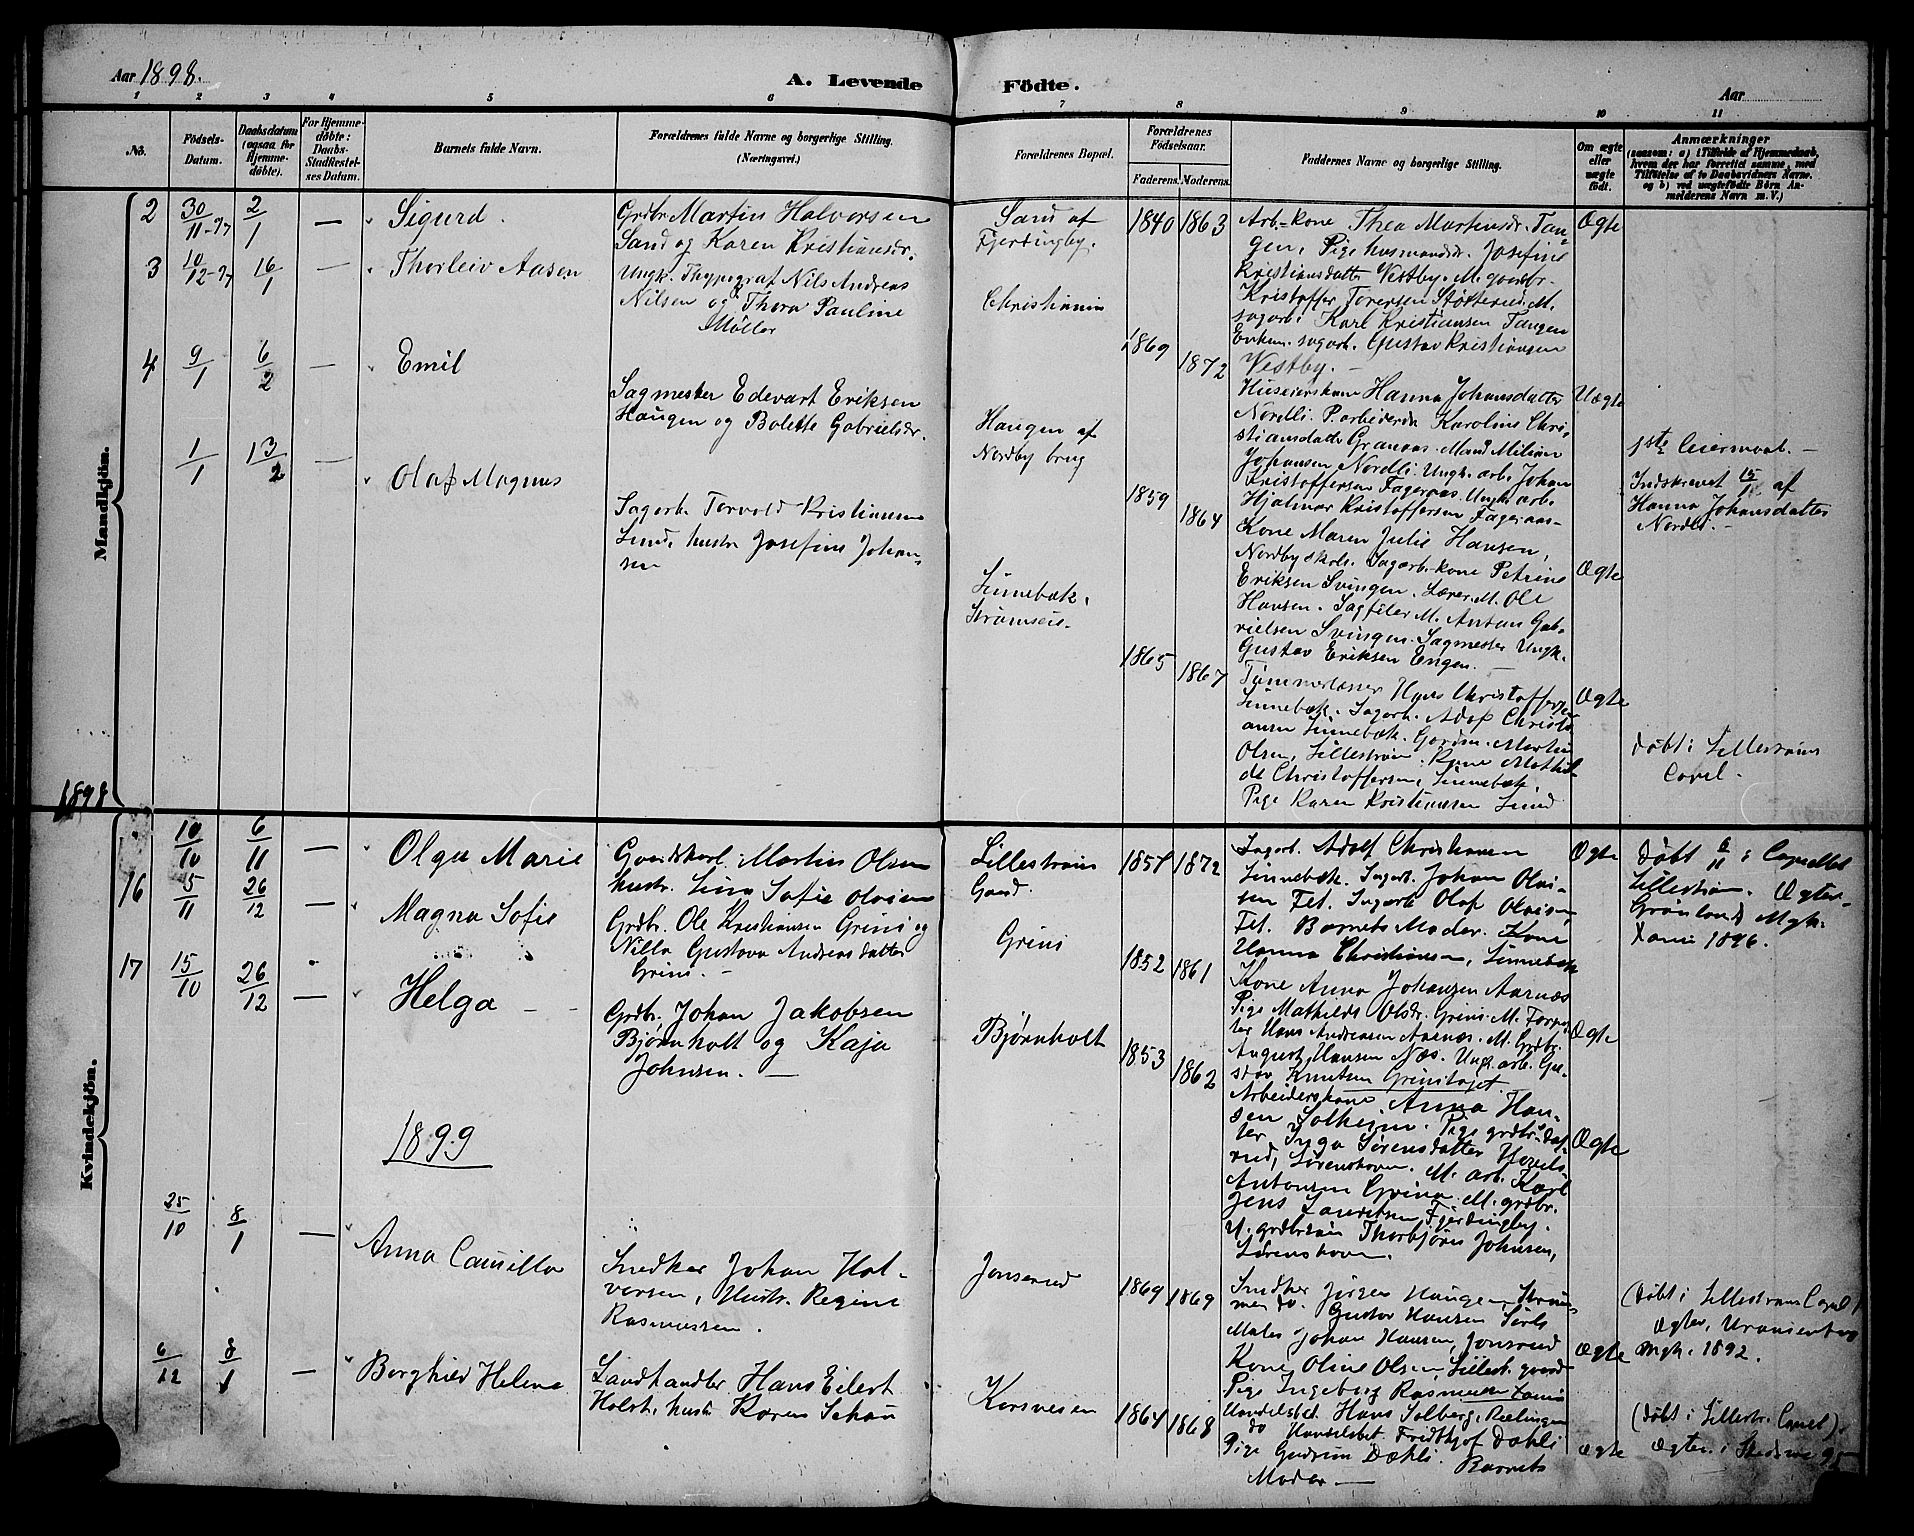 Aar 1898.
A. Levende Födte.
Aar
1 2 3 4 5 6 7 8 9 10 11
No.
Födsels-
Datum.
Daabsdatum
(ogsaa for
Hjemme-
döbte).
For Hjemme-
döbte:
Daabs-
Stadfæstel-
ses Datum.
Barnets fulde Navn.
Forældrenes fulde Navne og borgerlige Stilling.
(Næringsvei.)
Forældrenes Bopæl.
Forældrenes
Födselsaar.
Faderens. Moderens.
Faddernes Navne og borgerlige Stilling.
Om ægte
eller
uægte
födt.
Anmærkninger
(saasom: a) i Tilfælde af Hjemmedaab,
hvem der har forrettet samme, med
Tilföielse af to Daabsvidners Navne.
og b) ved uægtefödte Börn An-
melderens Navn m. V.)
Mandkjön.
2 30/11-97 2/1 — Sigurd.
Grdbr Martin Halvorsen
Sand og Karen Kristiansdr.
Sand af
Fjerdingby.
1840 1863
Arb.-kone Thea Martinsdr. Tan-
gen, Pige husmandsdr. Josefine
Kristiansdatter Vestby. M. gaardbr.
Kristoffer Torersen M.
sagarb. Karl Kristiansen Tangen
Enkem. sagarb. Gustav Kristiansen
Vestby. —
Ægte
3 10/12-97 16/1 — Thorleiv Aasen
Ungk. Thypograf Nils Andreas
Nilsen og Thora Pauline
Möller
Christiania
1869 1872
Huseierskone Hanna Johansdatter
Nordli. P. arbeiderdr. Karoline Chri-
stiansdatter Granaas. Mand Milian
Johansen Nordli. Ungk. arb. Johan
Kristoffersen Fageraas. Ungk. arb.
Hjalmar Kristoffersen Fageraas.
Uægte
1ste Leiermaal. —
Indskrevet 15/1 af
Hanna Johansdatter
Nordli. —
4 9/1 6/2 — Emil
Sagmester Edevart Eriksen
Haugen og Bolette Gabrielsdr.
Haugen af
Nordby brug
1859 1864
Kone Maren Julie Hansen,
Nordby skole. Sagarb.-kone Petrine
Eriksen Svingen. Lærer M. Ole
Hansen. Sagfiler M. Anton Gab-
rielsen Svingen. Sagmester Ungk.
Gustav Eriksen Engen. —
Ægte
1/1 13/2 — Olaf Magnus
Sagarb. Torvald Kristiansen
Lund, hustr. Josefine Johan-
sen
Linnebæk,
1865 1867
Tömmerlæsser Christoffersen
Linnebæk. Sagarb. Adolf Christi-
ansen Linnebæk. Gaardm. Martin
Olsen, Lilleström. Kone Mathil-
de Christoffersen, Linnebæk.
Pige Karen Kristiansen Lund
Ægte
Døbt i Lilleströms
Capel.
1898
Kvindekjön.
10/10 6/11 — Olga Marie
Gaardskarl Martin Olsen
hustr. Lina Sofie Olsen
Lilleströms
Gaard.
1857 1872
Sagarb. Adolf Christiansen
Linnebæk. Sagarb. Johan Olai-
sen Fet. Sagarb. Olaf Olaisen
Fet. Barnets Moder. Kone
Hanna Christiansen, Linnebæk
Ægte
Døbt 6/11 i Capellet
Lilleström. Ægtev.
Grönland Mgh.
1896.
16 5/11 26/12 — Magna Sofie
Grdbr. Ole Kristiansen Grini og
Nilla Gustava Andreasdatter
Grini. —
Grini
1852 1861
Kone Anna Johansen Aarnæs
Pige Mathilde Olsdr. Grini. M.
Hans Andreasen Aarnæs. M. Grdbr.
August Hansen Næs. Ungk. arb. Gu-
stav Knutsen Grinihaget.
Ægte
17 15/10 26/12 — Helga — -
Grdbr. Johan Jakobsen
Bjørnholt og Kaja
Johnsen. —
Bjørnholt
1853 1862
Arbeiderskone Anna Han-
sen Solheim. Pige grdbr. dat-
ter Inga Sörensdatter
Sörenshoven. M. arb. Karl
Antonsen Grina. M. grdbr.
Jens Lauritsen Fjerdingby.
U. grdbrsön Thorbjörn Johnsen,
Sörenshoven.
Ægte
1899
25/10 8/1 — Anna Camilla
Snedker Johan Hal-
vorsen, Hustr. Regine
Rasmussen.
Jonsrud
1869 1869
Snedker Jörgen Haugen, Ström-
men do. Gustav Hansen
Maler Johan Hansen, Jonsrud
Kone Oline Olsen, Lillestr. gaard
Pige Ingeborg Rasmussen
Ægte
(Døbt i Lilleströms Capel)
Ægtev. Uranienborg
Mgh. 1892.
6/12 8/1 — Borghild Helene
Landhandler Hans Eilert
Holst, hustr. Karen Schau
Korsveien
1864 1868
Handelsbet. Hans Solberg, Rælingen
do Handelsbet. Fridthjof Dæhli
Pige Gudrun Dæhli. Barnets
Moder —
Ægte
(Døbt i Lillestr. Capel).
Ægtev. i Skedsmo 95